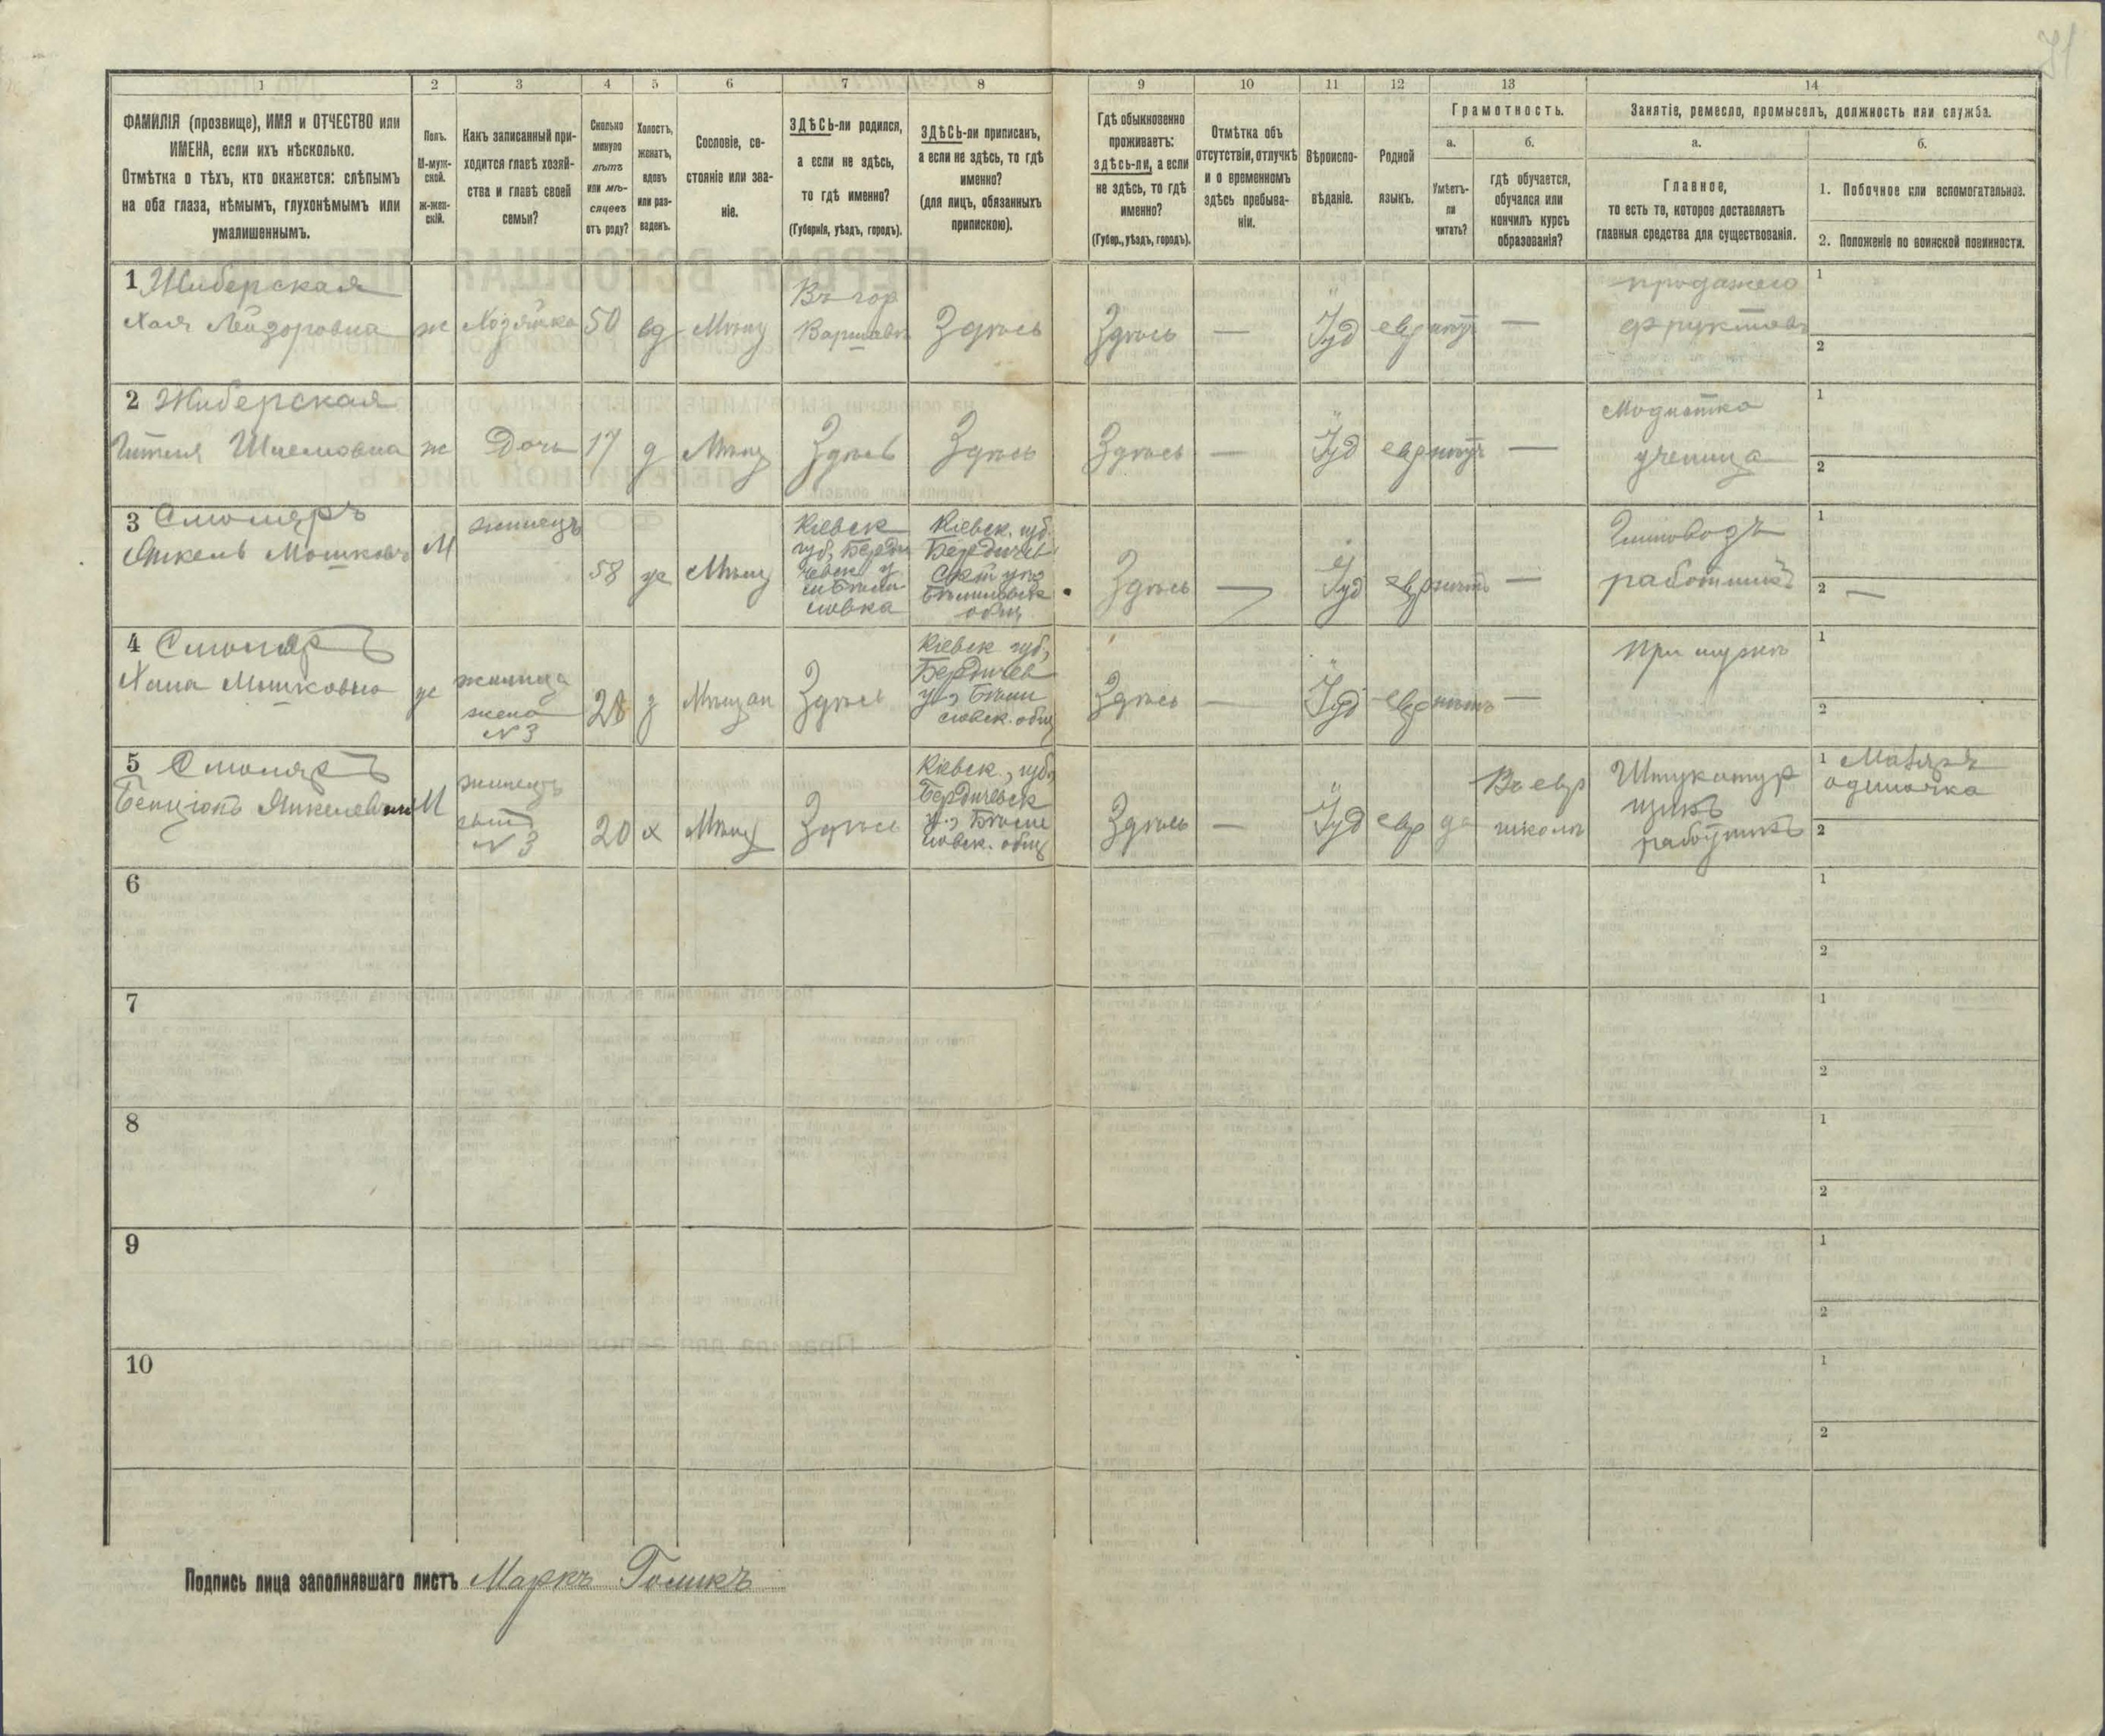 71
1 2 3 4 5 6 7 8 9 10 11 12 13 14
ФАМИЛІЯ (прозвище), ИМЯ и ОТЧЕСТВО или
ИМЕНА, если ихъ нѣсколько.
Отмѣтка о тѣхъ, кто окажется: слѣпымъ
на оба глаза, нѣмымъ, глухонѣмымъ или
умалишеннымъ.
Полъ.
М-муж-
ской.
ж-жен-
скій.
Какъ записанный при-
ходится главѣ хозяй-
ства и главѣ своей
семьи?
Сколько
минуло
лѣтъ
или мѣ-
сяцевъ
отъ роду?
Холостъ,
женатъ,
вдовъ
или раз-
веденъ.
Сословіе, со-
стояніе или зва-
ніе.
ЗДѢСЬ-ли родился,
а если не здѣсь,
то гдѣ именно?
(Губернія, уѣздъ, городъ).
ЗДѢСЬ-ли приписанъ,
а если не здѣсь, то гдѣ
именно?
(для лицъ, обязанныхъ
припискою).
Гдѣ обыкновенно
проживаетъ:
здѣсь-ли, а если
не здѣсь, то гдѣ
именно?
(Губер., уѣздъ, городъ).
Отмѣтка объ
отсутствіи, отлучкѣ
и о временномъ
здѣсь пребыва-
ніи.
Вѣроиспо-
вѣданіе.
Родной
языкъ.
Грамотность.
а.
Умѣетъ-
ли
читать?
б.
гдѣ обучается,
обучался или
кончилъ курсъ
образованія?
Занятіе, ремесло, промыселъ, должность или служба.
а.
Главное,
то есть то, которое доставляетъ
главныя средства для существованія.
б.
1. Побочное или вспомогательное.
2. Положеніе по воинской повинности.
1 Жиберская
Хая Лейзоровна
ж
Хозяйка
50
вд
Мѣщ
Въ гор
Варшавѣ
Здѣсь
Здѣсь
—
Іуд
евр
нѣтъ
—
продажею
фруктовъ
1
2
2 Жиберская
Гитля Шлемовна
ж
Дочь
17
д
Мѣщ
Здѣсь
Здѣсь
Здѣсь
—
Іуд
евр
нѣтъ
—
Модистка
ученица
1
2
3 Смоляръ
Янкель Мошковъ
М
жилецъ
58
же
Мѣщ
Кіевск
губ, Берди
чевск у.
Кіевск. губ.
Бердичев
общ
Здѣсь
—
Іуд
евр
нѣтъ
—
работникъ
1
2 —
4 Смоляръ
Хана Мошковна
же
жилица
жена
№3
28
з
Мѣщан
Здѣсь
Кіевск губ,
Бердичев
ловск. общ
Здѣсь
—
Іуд
евр
нѣтъ
—
при мужѣ
1
2
5 Смоляръ
Бенціонъ Янкелевичъ
М
жилецъ
сынъ
№3
20
х
Мѣщ
Здѣсь
Кіевск, губ,
Бердичевск
ловск. общ
Здѣсь
—
Іуд
евр
да
Въ евр
школѣ
Штукатур
щикъ
работникъ
1 Маляръ
одиночка
2
6
1
2
7
1
2
8
1
2
9
1
2
10
1
2
Подпись лица заполнявшаго листъ Маркъ Голикъ